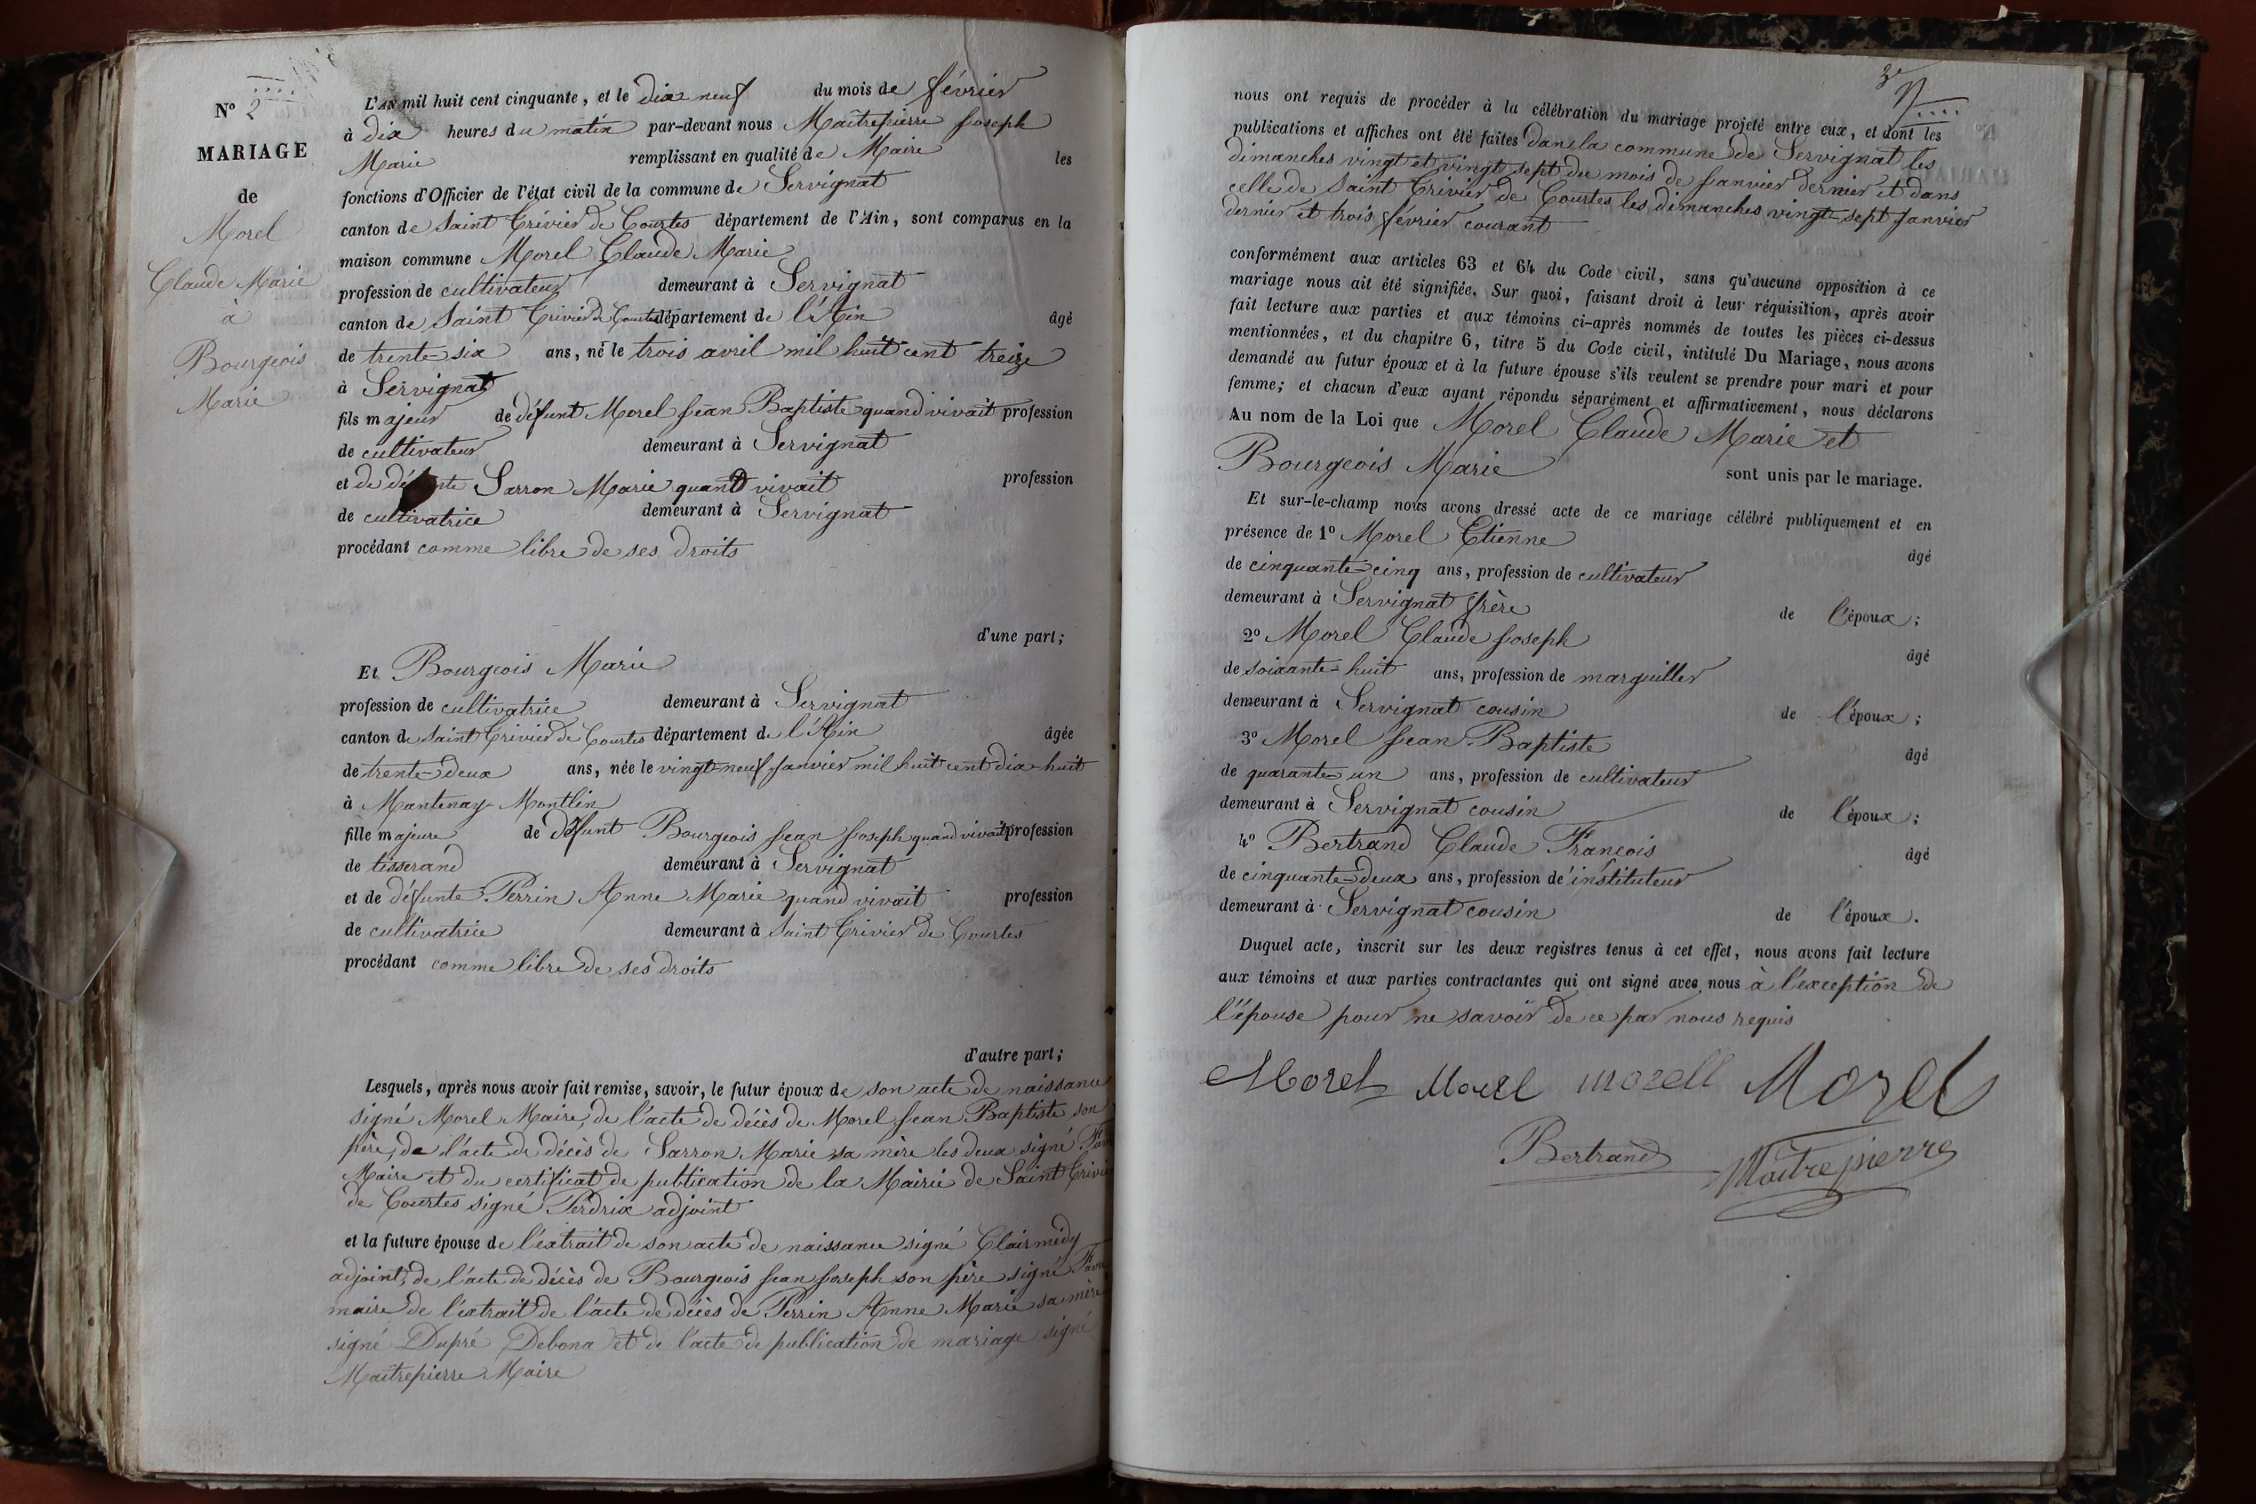 N° 2
MARIAGE
de
Morel
Claude Marie
à
Bourgeois
Marie
L'AN mil huit cent cinquante, et le dix neuf du mois de février
à dix heures du matin par-devant nous Maîtrepierre Joseph
Marie remplissant en qualité de Maire les
fonctions d'Officier de l'état civil de la commune de Servignat
canton de Saint Trivier de Courtes département de l'Ain, sont comparus en la
maison commune Morel Claude Marie
profession de cultivateur demeurant à Servignat
canton de Saint Trivier de Courtes département de l'Ain âgé
de trente-six ans, né le trois avril mil huit cent treize
à Servignat
fils majeur de défunt Morel Jean Baptiste quand vivait profession
de cultivateur demeurant à Servignat
et de défunte Sarron Marie quand vivait profession
de cultivatrice demeurant à Servignat
procédant comme libre de ses droits
d'une part;
Et Bourgeois Marie
profession de cultivatrice demeurant à Servignat
canton de Saint Trivier de Courtes département de l'Ain âgée
de trente-deux ans, née le vingt-neuf janvier mil huit cent dix-huit
à Mantenay-Montlin
fille majeure de défunt Bourgeois Jean Joseph quand vivait profession
de tisserand demeurant à Servignat
et de défunte Perrin Anne Marie quand vivait profession
de cultivatrice demeurant à Saint Trivier de Courtes
procédant comme libre de ses droits
d'autre part;
Lesquels, après nous avoir fait remise, savoir, le futur époux de son acte de naissance
signé Morel Maire, de l'acte de décès de Morel Jean Baptiste son
père, de l'acte de décès de Sarron Marie sa mère les deux signé
Maire et du certificat de publication de la Mairie de Saint Trivier
de Courtes signé Perdrix adjoint
et la future épouse de l'extrait de son acte de naissance signé Clairmidy
adjoint, de l'acte de décès de Bourgeois Jean Joseph son père signé
maire de l'extrait de l'acte de décès de Perrin Anne Marie sa mère
signé Dupré Debona et de l'acte de publication de mariage signé
Maitrepierre Maire
3e
nous ont requis de procéder à la célébration du mariage projeté entre eux, et dont les
publications et affiches ont été faites dans la commune de Servignat les
dimanches vingt et vingt sept du mois de Janvier dernier et dans
celle de Saint Trivier de Courtes les dimanches vingt-sept Janvier
dernier et trois février courant
conformément aux articles 63 et 64 du Code civil, sans qu'aucune opposition à ce
mariage nous ait été signifiée. Sur quoi, faisant droit à leur réquisition, après avoir
fait lecture aux parties et aux témoins ci-après nommés de toutes les pièces ci-dessus
mentionnées, et du chapitre 6, titre 5 du Code civil, intitulé Du Mariage, nous avons
demandé au futur époux et à la future épouse s'ils veulent se prendre pour mari et pour
femme; et chacun d'eux ayant répondu séparément et affirmativement, nous déclarons
Au nom de la Loi que Morel Claude Marie et
Bourgeois Marie sont unis par le mariage.
Et sur-le-champ nous avons dressé acte de ce mariage célébré publiquement et en
présence de 1° Morel Etienne âgé
de cinquante-cinq ans, profession de cultivateur
demeurant à Servignat frère de l'époux;
2° Morel Claude Joseph âgé
de soixante-huit ans, profession de marguiller
demeurant à Servignat cousin de l'époux;
3° Morel Jean-Baptiste âgé
de quarante-un ans, profession de cultivateur
demeurant à Servignat cousin de l'époux;
4° Bertrand Claude François âgé
de cinquante-deux ans, profession de instituteur
demeurant à Servignat cousin de l'époux.
Duquel acte, inscrit sur les deux registres tenus à cet effet, nous avons fait lecture
aux témoins et aux parties contractantes qui ont signé avec nous à l'exception de
l'épouse pour ne savoir de ce par nous requis
Morel Morel morell Morel
Bertrand Maîtrepierre